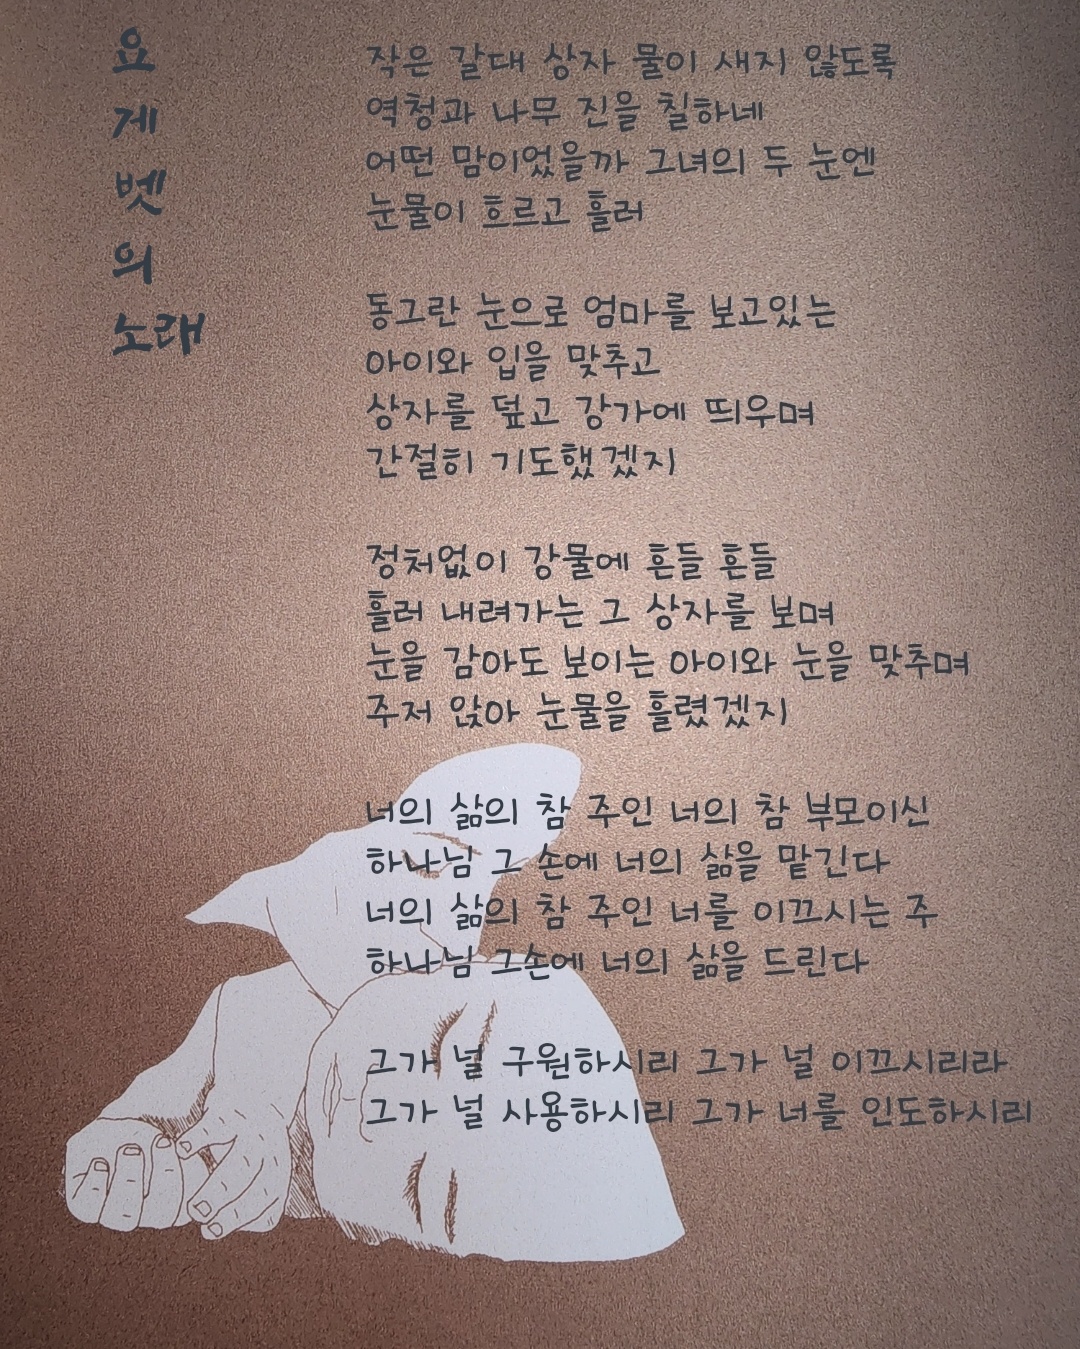 요
게
벳
의
노래
작은 갈대 상자 물이 새지 않도록
역청과 나무 진을 칠하네
어떤 맘이었을까 그녀의 두 눈엔
눈물이 흐르고 흘러
동그란 눈으로 엄마를 보고있는
아이와 입을 맞추고
상자를 덮고 강가에 띄우며
간절히 기도했겠지
정처없이 강물에 흔들 흔들
흘러 내려가는 그 상자를 보며
눈을 감아도 보이는 아이와 눈을 맞추며
주저 앉아 눈물을 흘렸겠지
너의 삶의 참 주인 너의 참 부모이신
하나님 그 손에 너의 삶을 맡긴다
너의 삶의 참 주인 너를 이끄시는 주
하나님 그손에 너의 삶을 드린다
그가 널 구원하시리 그가 널 이끄시리라
그가 널 사용하시리 그가 너를 인도하시리